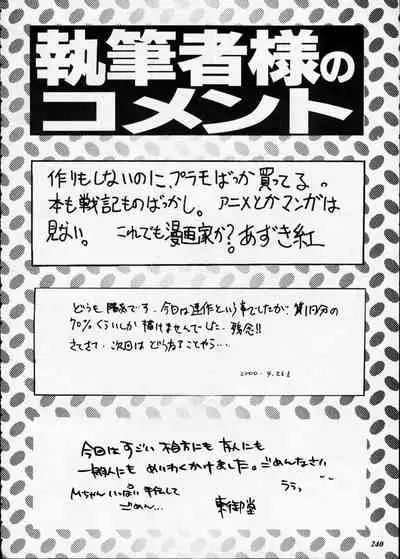 執筆者様の
コメント
作りもしないのに、プラモばっか買ってる。
本も戦記ものばっかし。アニメとかマンガは
見ない。これでも漫画家か？あずき紅
どうも 陽気です。今回は連作という事でしたが、第1回分の
70%くらいしか描けませんでした。残念!!
さてさて、次回はどうなることやら…
2000.
今回はすごい 不相方にも 友人にも
一般人にも めいわくかけました。ごめんなさい
Mちゃん いっぱい 手伝して ううっ
ごめん… 東御堂
240